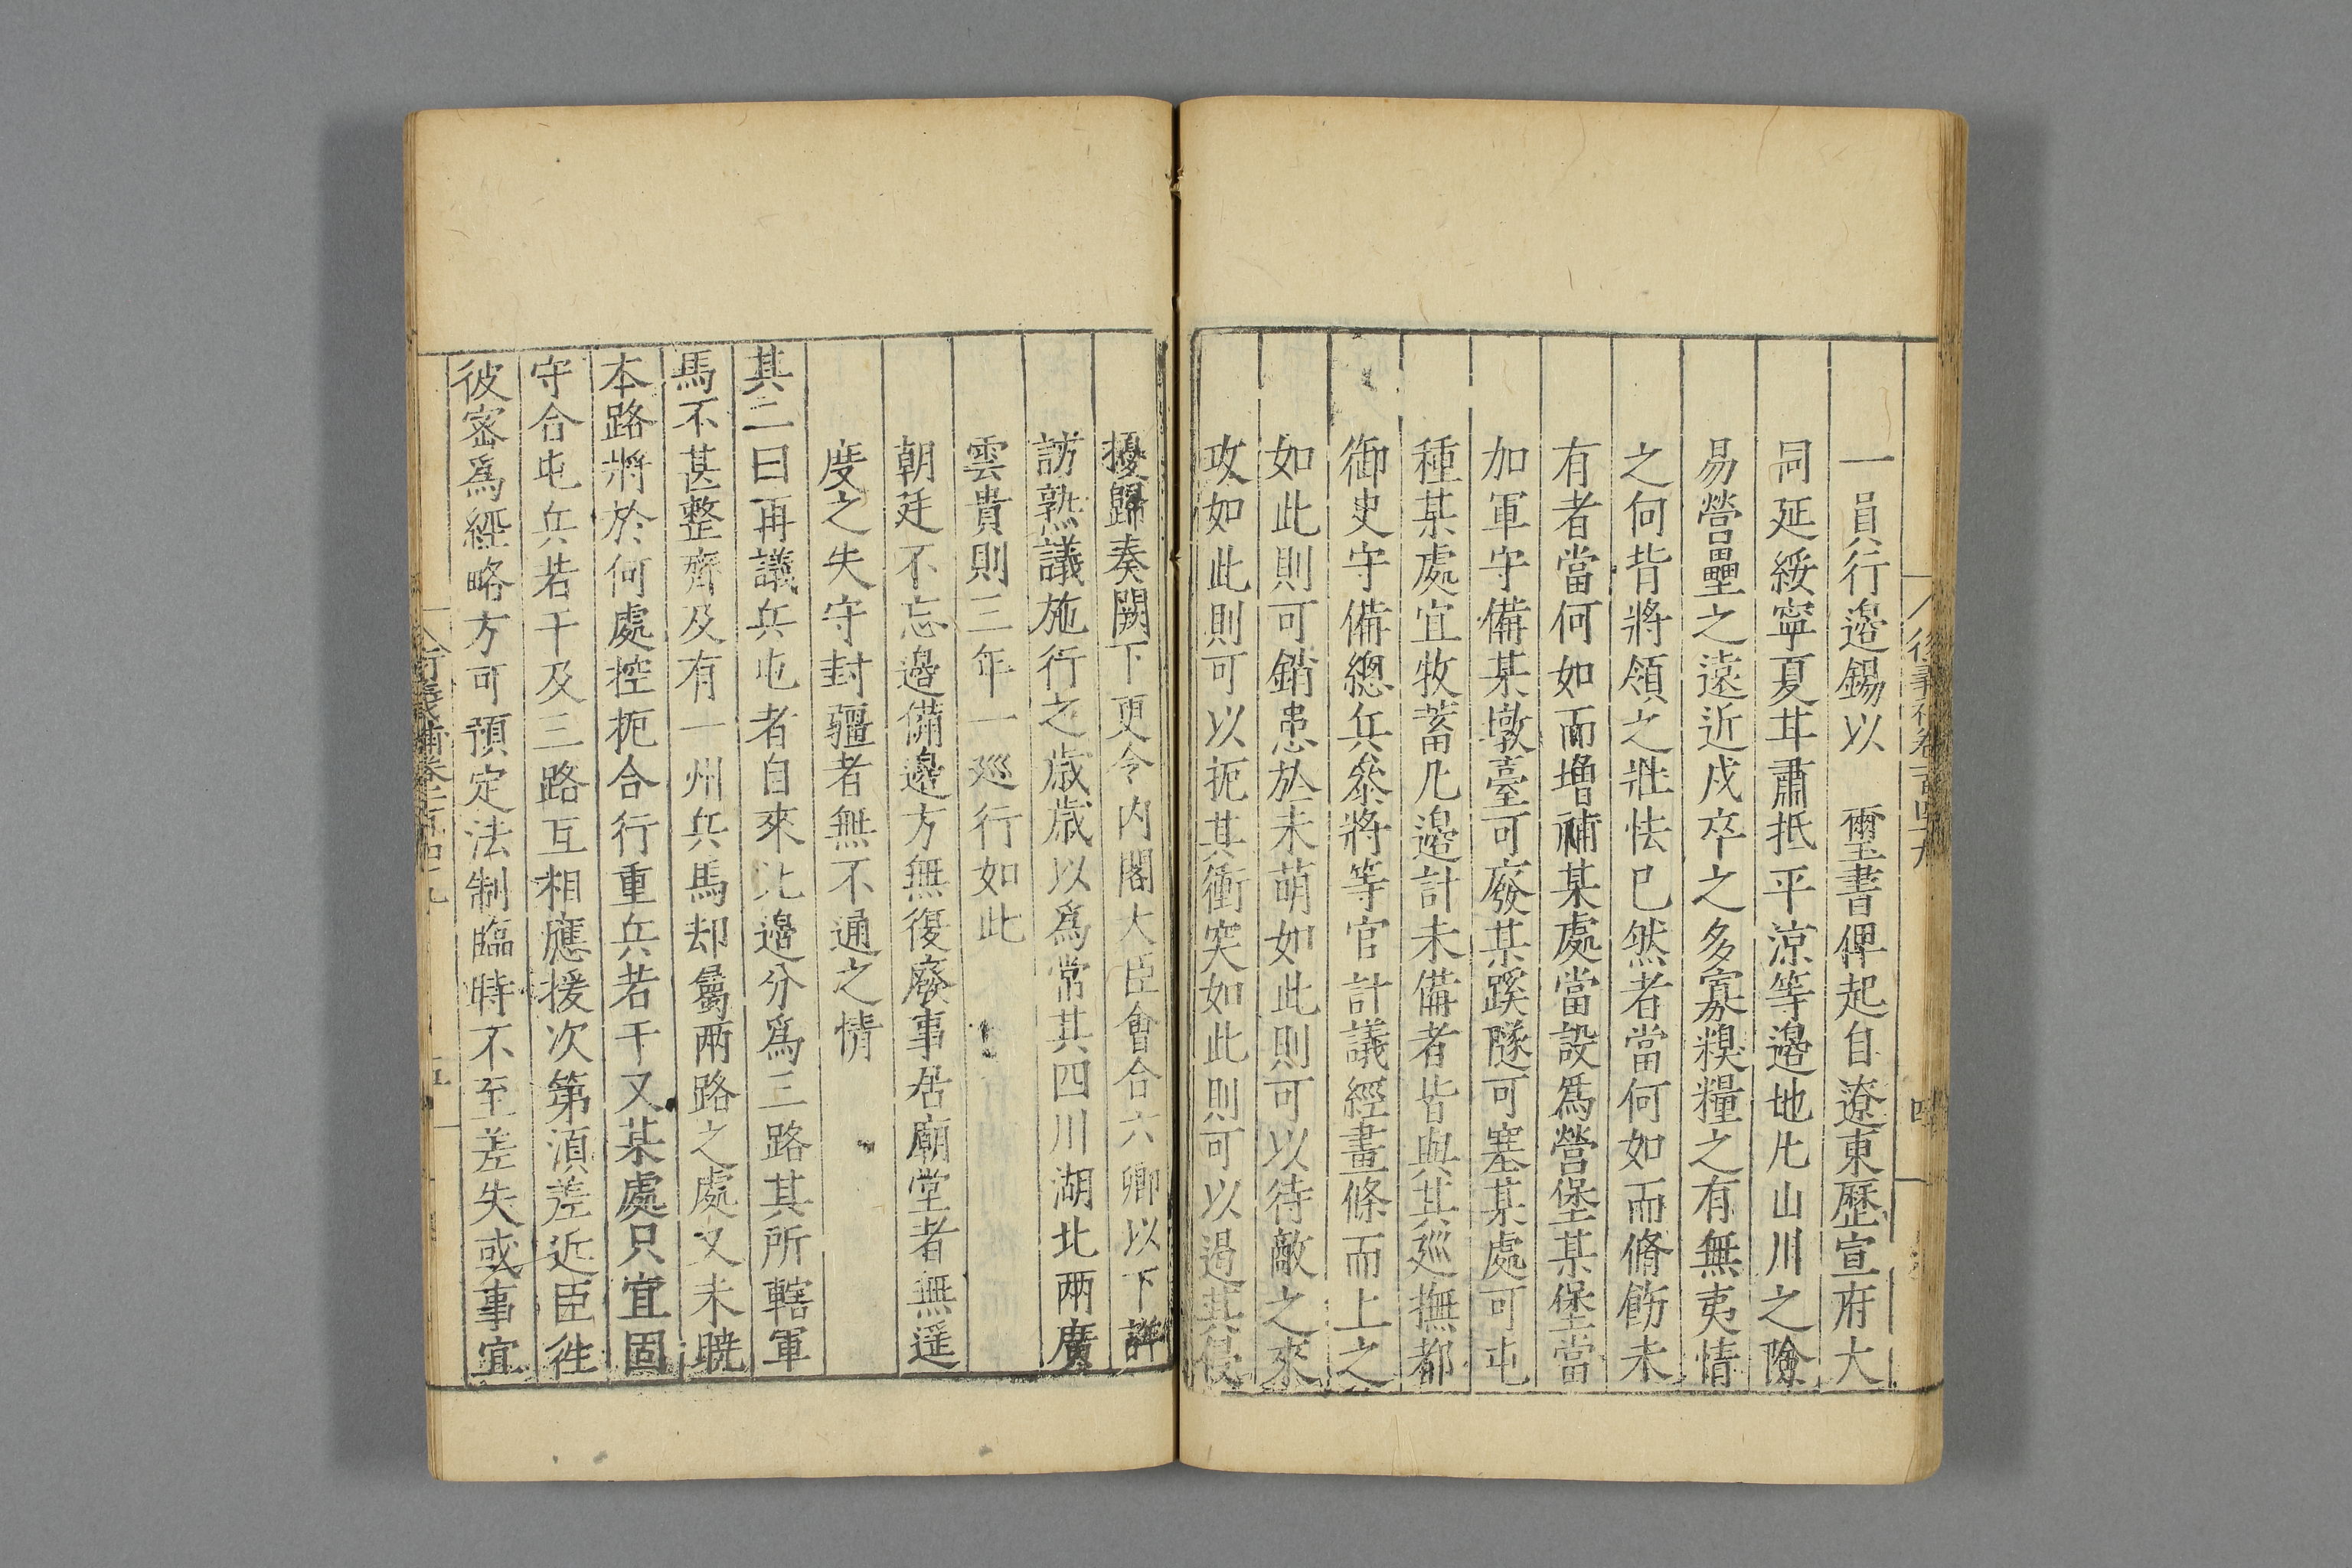 一員行邉錫以　璽書俾起自遼東歷宣府大
同延綏寧夏甘肅抵平凉等邉地凢山川之險
易營壘之遠近戍卒之多寡糗糧之有無夷情
之向背將領之壯怯已然者當何如而脩飭未
有者當何如而增補某處當設爲營堡某堡當
加軍守備某墩臺可廢某蹊隧可塞某處可屯
種某處宜牧蓄凢邉計未備者皆與其廵撫都
御史守備總兵叅將等官計議經畫條而上之
如此則可銷患於未萌如此則可以待敵之來
攻如此則可以扼其衝突如此則可以遏其侵
擾歸奏闕下更令内閣大臣會合六卿以下詳
訪熟議施行之歲歲以爲常其四川湖北兩廣
雲貴則三年一廵行如此
朝廷不忘邉備邉方無復廢事居廟堂者無遥
度之失守封疆者無不通之情
其二曰再議兵屯者自來沿邉分爲三路其所轄軍
馬不甚整齊及有一州兵馬却屬兩路之處又未曉
本路將於何處控扼合行重兵若干又某處只宜固
守合屯兵若干及三路互相應援次第湏差近臣徃
彼宻爲經略方可預定法制臨時不至差失或事宜
衍義補卷一百四十九
五